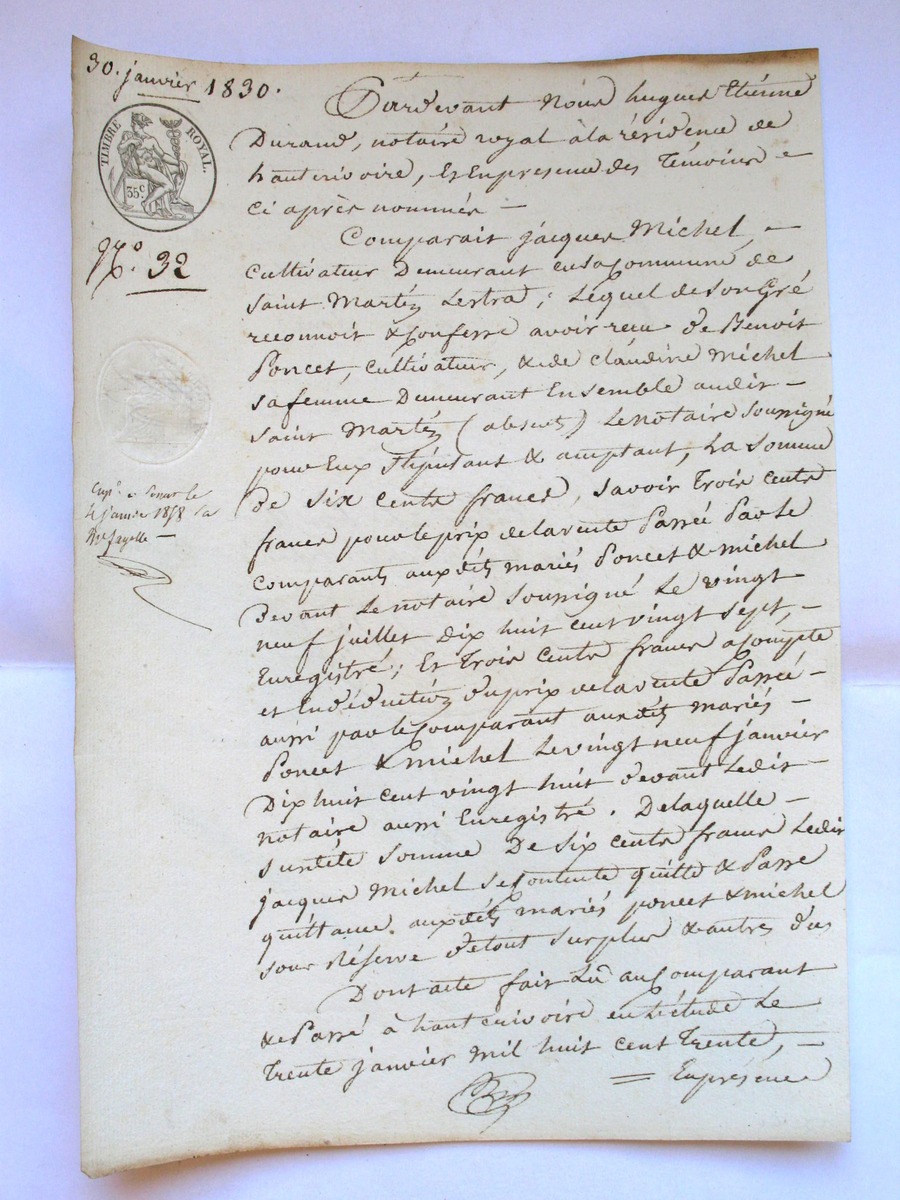 30. janvier 1830.
TIMBRE ROYAL.
35 c.
N.º 32
Pardevant Nous hugues Etiénne
Durand, notaire royal à la résidence de
hauterivoire, Et En presence des Témoins
ci après nommés —
Comparait jacques Michel,
cultivateur Demeurant en sa Commune de
saint Martin Lestra ; Lequel de Son Gré
reconnoit & Confesse avoir recu de Benoit
Poncet, cultivateur, & de claudine Michel
sa femme Demeurant Ensemble audit —
saint Martin (absents) Le notaire soussigné
pour Eux stipulant & acceptant, La somme
De six cents francs, savoir Trois cents
francs pour le prix de la vente Passée Par le
comparant aux dits mariés Poncet & michel
Devant Le notaire soussigné Le vingt
neuf juillet Dix huit cent vingt sept, —
Enregistré ; Et Trois cents francs acompte
et En déduction du prix de la vente Passée —
aussi par le Comparant aux dits mariés —
Poncet & michel Le vingt neuf janvier
Dix huit cent vingt huit devant Ledit —
notaire aussi Enregistré. De laquelle —
susditte somme De Six cents francs Ledit
jacques Michel se Contente quitte & Passe
quittance aux dits mariés poncet & michel
sous Réserve de tout surplus & autres dus
Dont acte fait Lû au Comparant
& Passé à hauterivoire en L'étude Le
Trente janvier Mil huit cent Trente, —
= En présence
Exp.on
4 janvier 1858